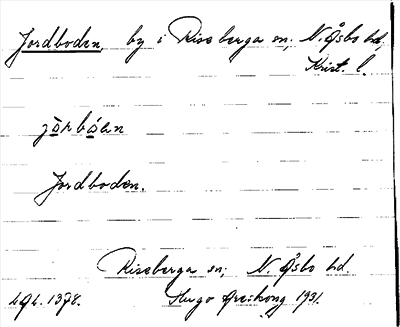 Jordboden, by i Riseberga sn, N. Åsbo hd,
Krist. l.
jorboen
Jordboden.
Riseberga sn, N. Åsbo hd.
Hugo Areskoug 1931.